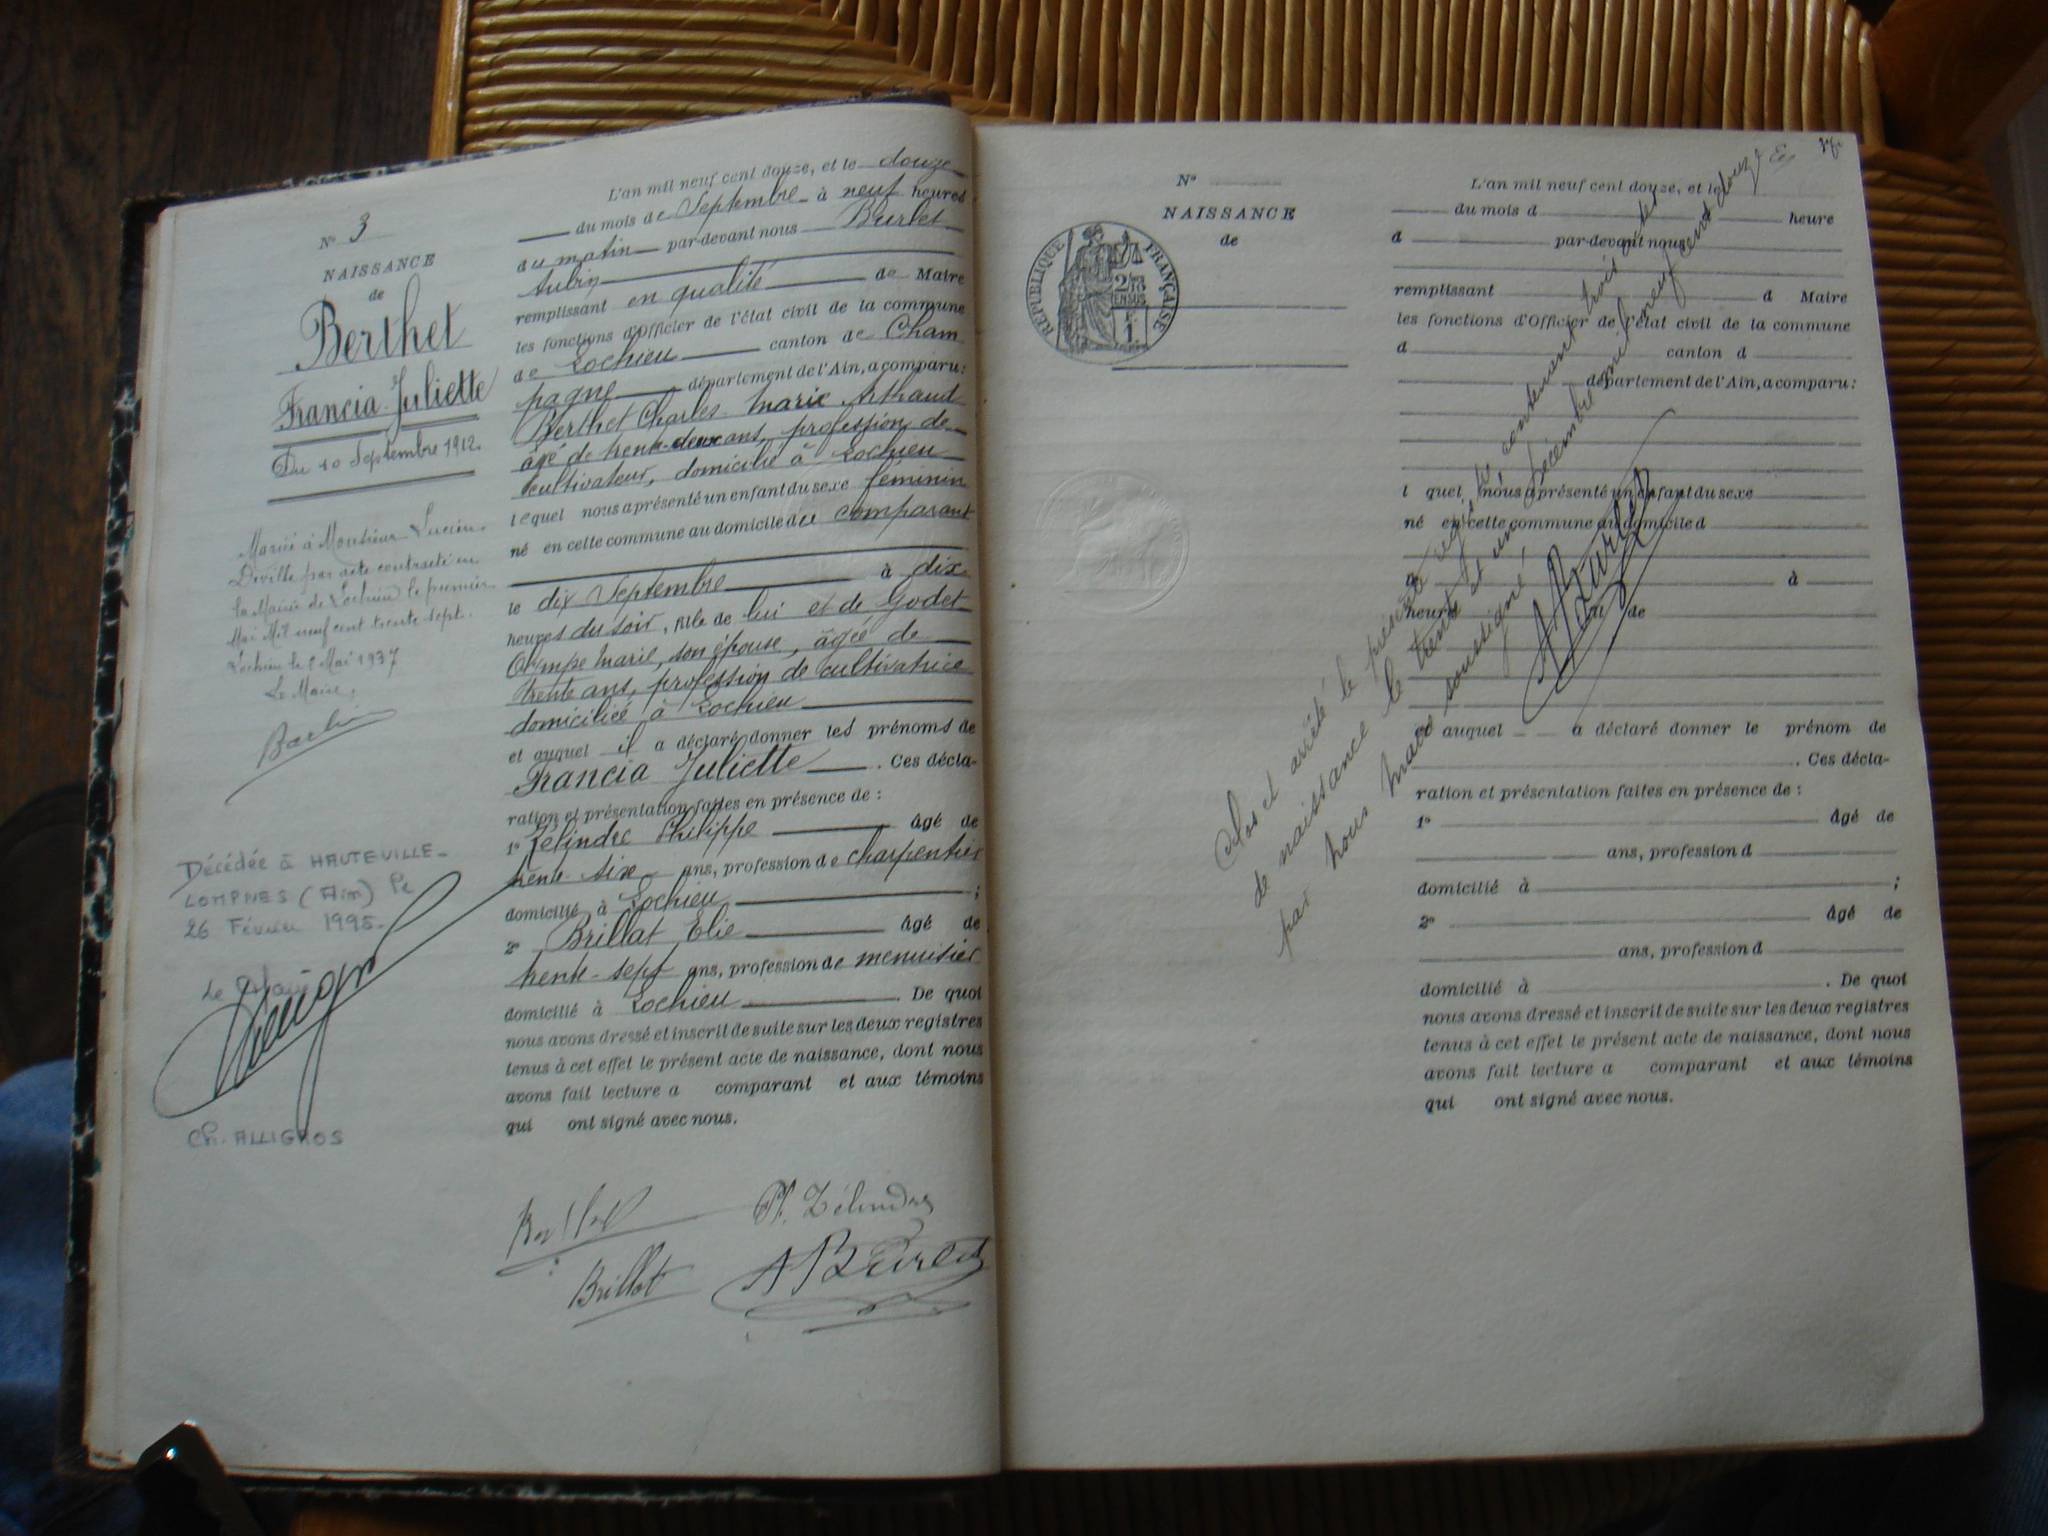 N° 3
NAISSANCE
de
Berthet
Francia Juliette
Du 10 Septembre 1912.
Mariée à Monsieur Lucien
Deville par acte contracté en
la Mairie de Lochieu le premier
Mai Mil neuf cent trente sept.
Lochieu le 2 Mai 1937
Le Maire,
Décédée à HAUTEVILLE-
LOMPNES (Ain) le
26 Février 1995.
Le Maire
Ch. ALLIGROS
L'an mil neuf cent douze, et le douze
du mois de Septembre à neuf heures
du matin par-devant nous Burlet
Aubin
remplissant en qualité de Maire
les fonctions d'Officier de l'état civil de la commune
de Lochieu canton de Cham
pagne département de l'Ain, a comparu :
Berthet Charles Marie Arthaud
âgé de trente-deux ans, profession de
cultivateur, domicilié à Lochieu
lequel nous a présenté un enfant du sexe féminin
né en cette commune au domicile du comparant
le dix Septembre à dix
heures du soir, fille de lui et de Godet
Olympe Marie, son épouse, âgée de
trente ans, profession de cultivatrice
domiciliée à Lochieu
et auquel il a déclaré donner les prénoms de
Francia Juliette . Ces décla-
ration et présentation faites en présence de :
1° Zélindre Philippe âgé de
trente-six ans, profession de charpentier
domicilié à Lochieu ;
2° Brillat Elie âgé de
trente-sept ans, profession de menuisier
domicilié à Lochieu . De quoi
nous avons dressé et inscrit de suite sur les deux registres
tenus à cet effet le présent acte de naissance, dont nous
avons fait lecture a comparant et aux témoins
qui ont signé avec nous.
Berthet Ph. Zélindre
Brillat A Burlet
N°
NAISSANCE
de
RÉPUBLIQUE FRANÇAISE
L'an mil neuf cent douze, et le
du mois d heure
d par-devant nous
remplissant d Maire
les fonctions d'Officier de l'état civil de la commune
d canton d
département de l'Ain, a comparu :
l quel nous a présenté un enfant du sexe
né en cette commune au domicile d
à
heure de
et auquel a déclaré donner le prénom de
. Ces décla-
ration et présentation faites en présence de :
1° âgé de
ans, profession d
domicilié à ;
2° âgé de
ans, profession d
domicilié à . De quoi
nous avons dressé et inscrit de suite sur les deux registres
tenus à cet effet le présent acte de naissance, dont nous
avons fait lecture a comparant et aux témoins
qui ont signé avec nous.
Clos et arrêté le présent registre contenant trois actes
de naissance le trente et un Décembre mil neuf cent douze
par nous maire soussigné
A Burlet